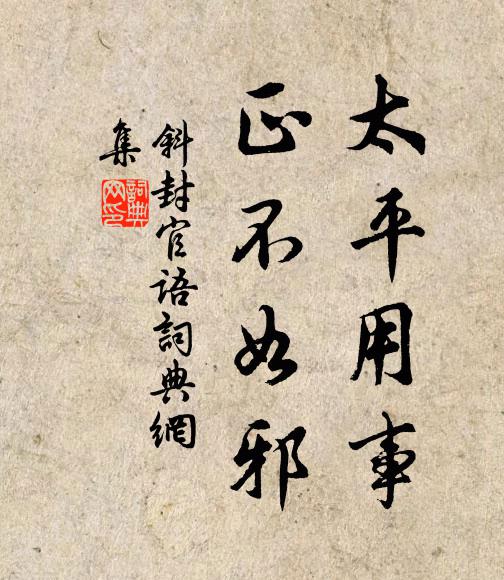 太平用事
正不如邪
斜封官語詞典網
集
詞典
网印